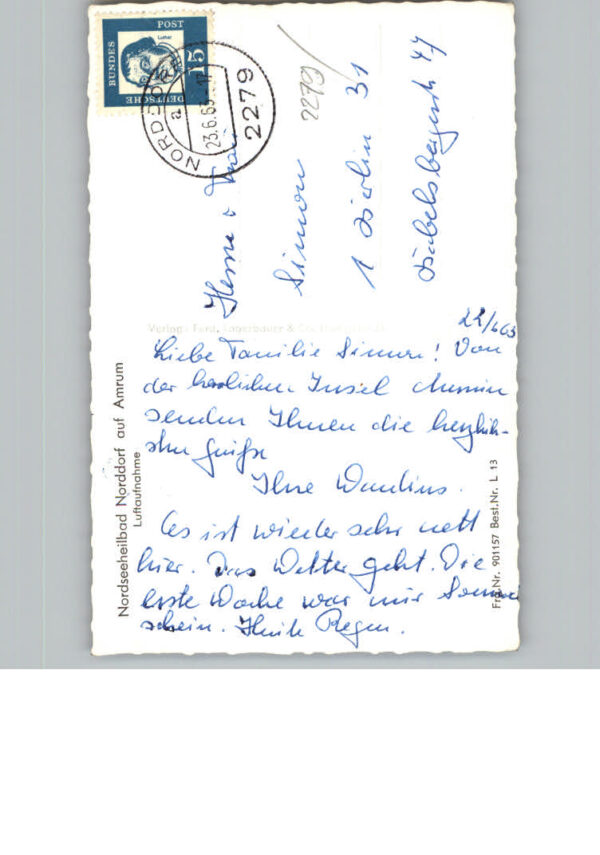 DEUTSCHE
BUNDES
POST
Luther
15
NORDDORF
a
23.6.63-17
2279
2279
Herrn u Frau
Simon
1 Berlin 31
Babelsbergerstr 47
22/6 63
Liebe Familie Simon! Von
der herrlichen Insel Amrum
senden Ihnen die herzlich-
sten Grüße
Ihre
Es ist wieder sehr nett
hier. Das Wetter geht. Die
erste Woche war nur Sonnen
schein. Heute Regen.
Verlag: Ferd. Lagerbauer & Co.
Nordseeheilbad Norddorf auf Amrum
Luftaufnahme
Frg.Nr. 901157 Best.Nr. L 13